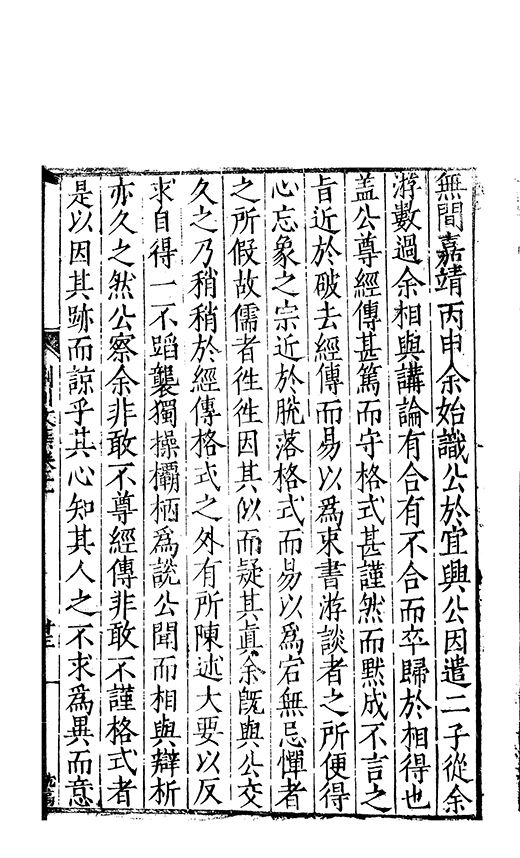 無間嘉靖丙申余始識公於宜興公因遣二子從余
游數過余相與講論有合有不合而卒歸於相得也
盖公尊經傳甚篤而守格式甚謹然而默成不言之
旨近於破去經傳而易以爲束書游談者之所便得
心忘象之宗近於脫落格式而易以爲宕無忌憚者
之所假故儒者徃徃因其似而疑其真余旣與公交
久之乃稍稍於經傳格式之外有所陳述大要以反
求自得一不蹈襲獨操欛柄爲說公聞而相與辯析
亦久之然公察余非敢不尊經傳非敢不謹格式者
是以因其跡而諒乎其心知其人之不求爲異而意